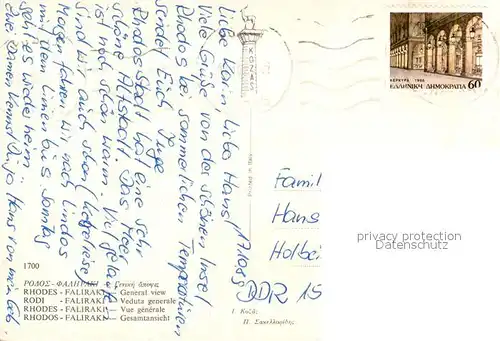 Liebe Karin, liebe Hans!
Viele Grüße von der schönen Insel
Rhodos bei sommerlichen Temperaturen
sendet Euch Inge
Rhodos Stadt hat eine sehr
schöne Altstadt. Das Meer
ist noch schön warm. Viel gelaufen
sind wir auch schon
Morgen fahren wir nach Lindos
mit dem Linienbus. Sonntag
geht es wieder heim.
17.10.89
1700
ΡΟΔΟΣ - ΦΑΛΗΡΑΚΙ - Γενική άποψις
RHODES - FALIRAKI - General view
RODI - FALIRAKI - Veduta generale
RHODES - FALIRAKI - Vue générale
RHODOS - FALIRAKI - Gesamtansicht
ΚΟΖΑΣ
Printed in Italy
Ι. Κοζᾶς
Π. Σακελλαρίδης
ΚΕΡΚΥΡΑ 1988
ΕΛΛΗΝΙΚΗ ΔΗΜΟΚΡΑΤΙΑ 60
Famil
Hans
Holbei
DDR 15
privacy protection
(www.ansichtskarten-center.de)